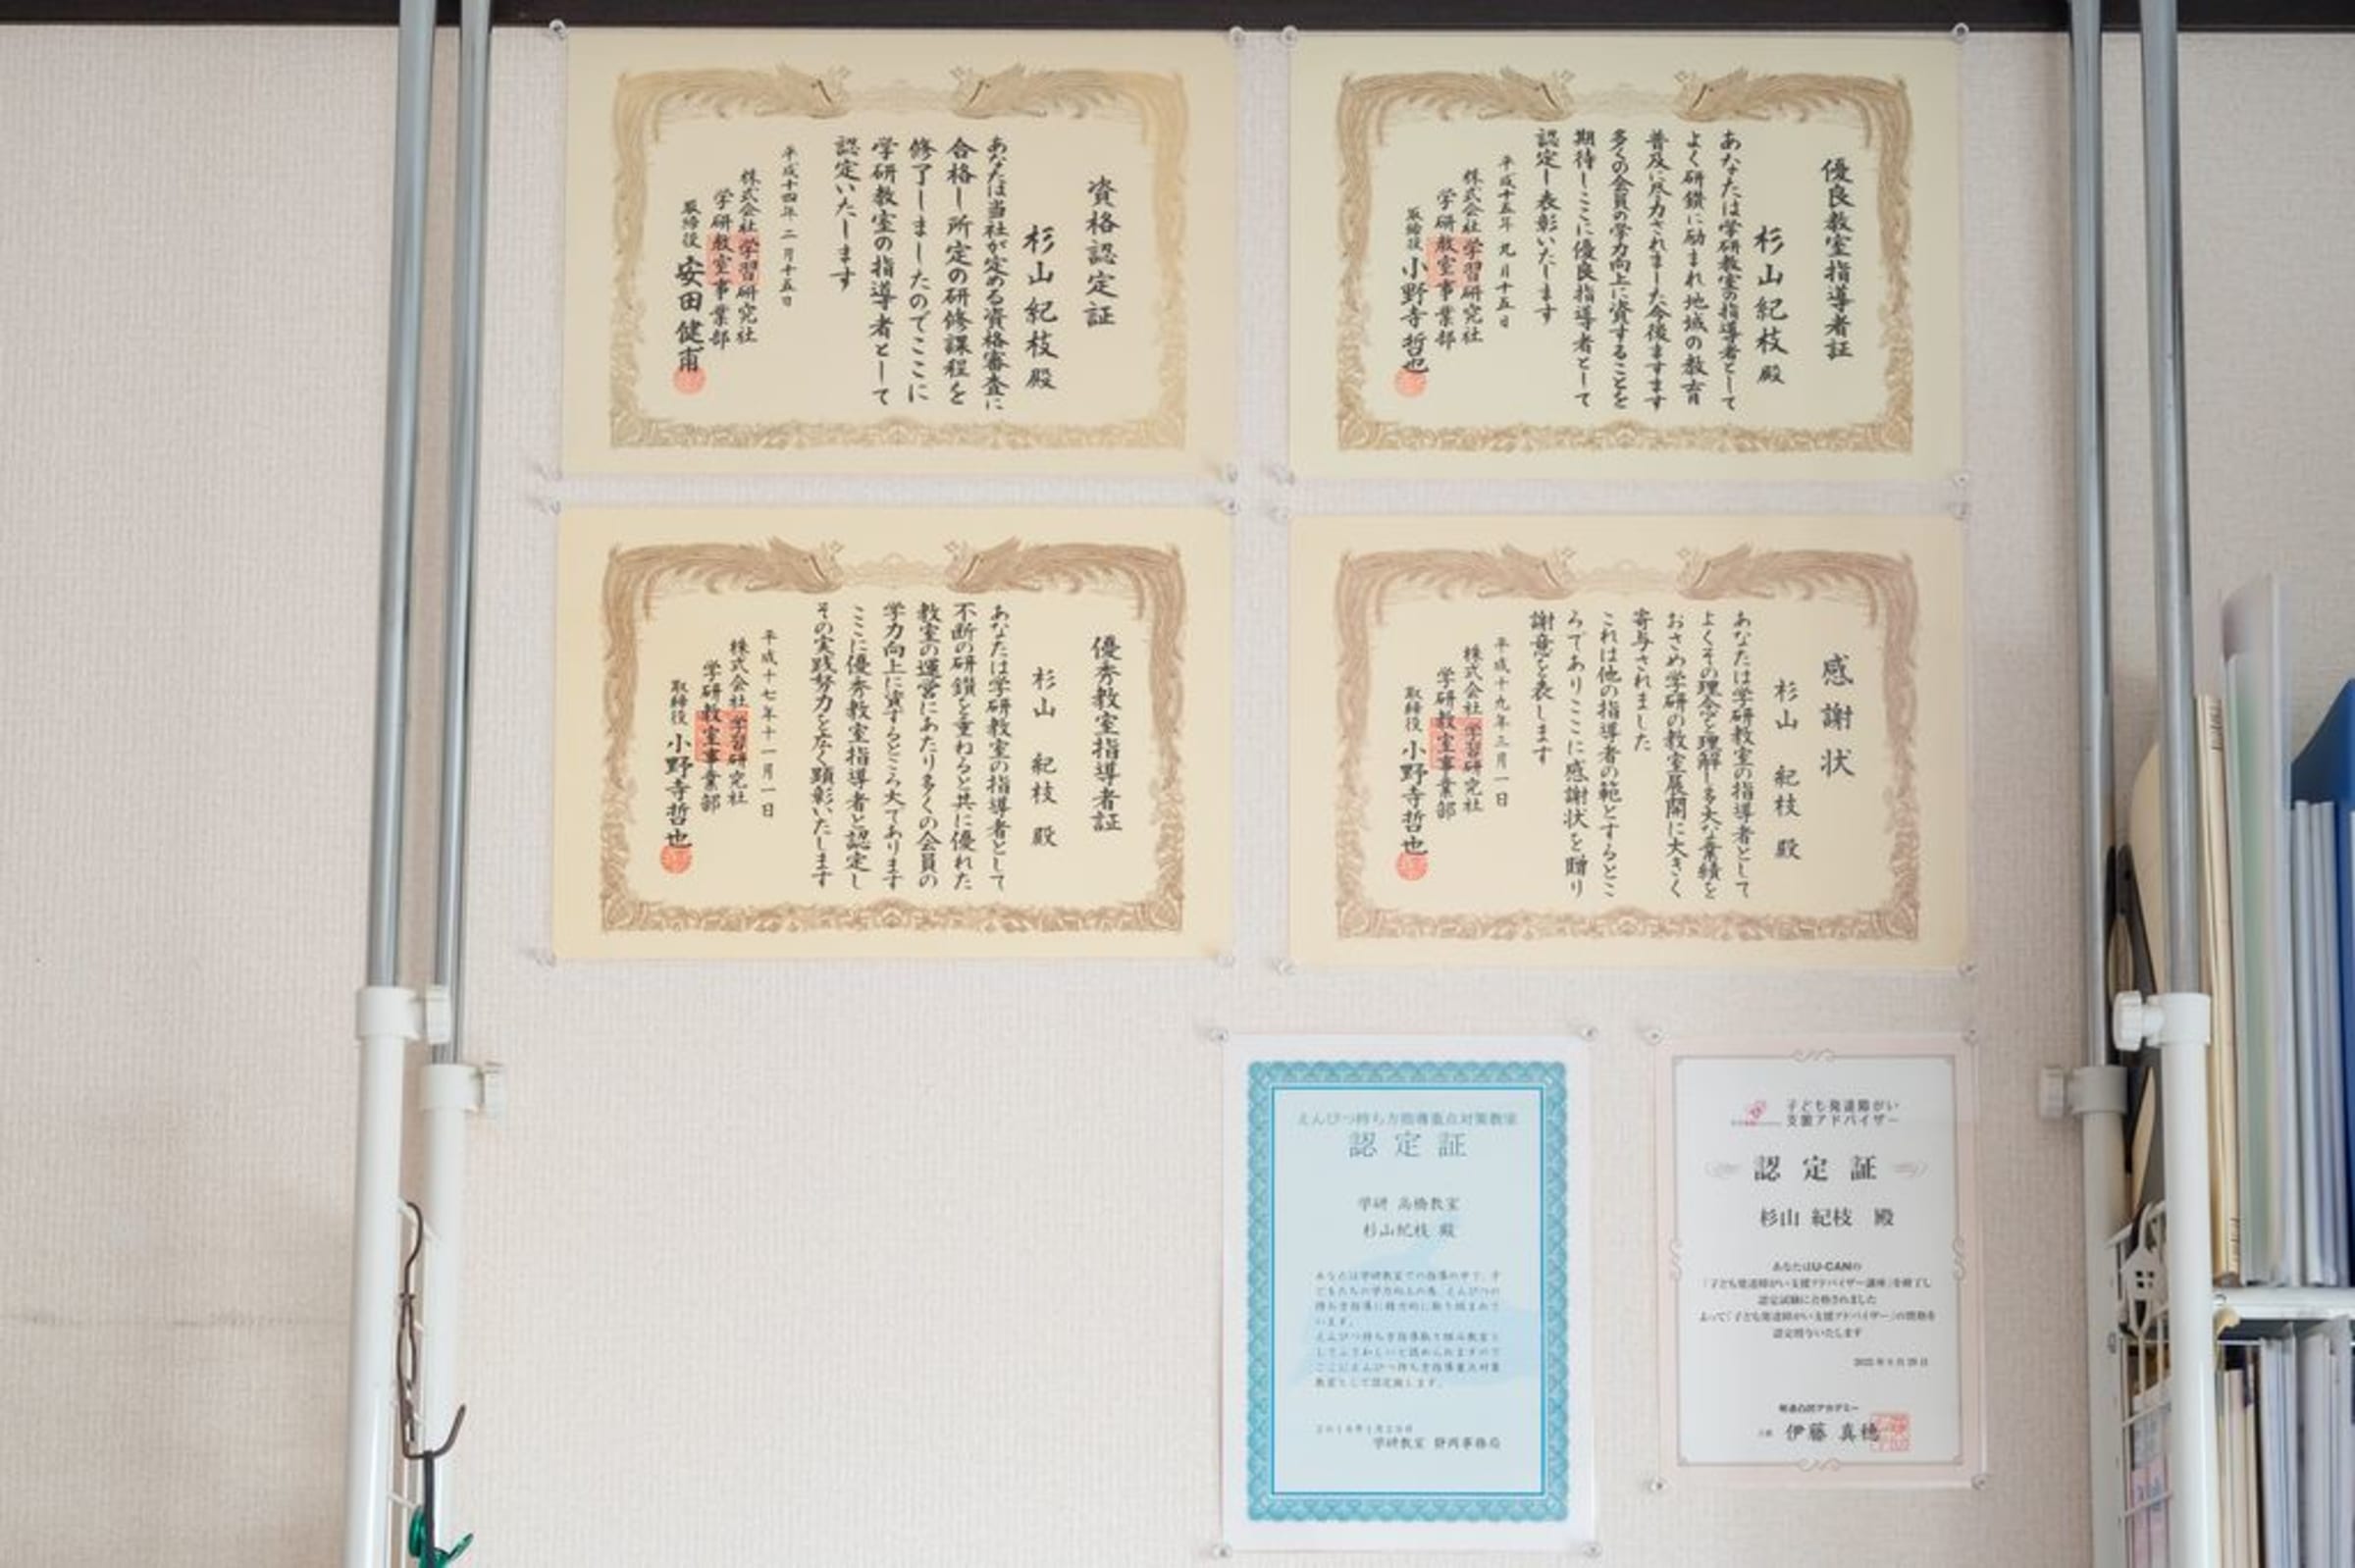 資格認定証
杉山紀枝殿
あなたは当社が定める資格審査に
合格し所定の研修課程を
修了しましたのでここに
学研教室の指導者として
認定いたします
平成十四年二月十五日
株式会社学習研究社
学研教室事業部
取締役 安田健甫
優良教室指導者証
杉山紀枝殿
あなたは学研教室の指導者として
よく研鑽に励まれ地域の教育
普及に尽力されました今後ますます
多くの会員の学力向上に資することを
期待しここに優良指導者として
認定し表彰いたします
平成十五年九月十五日
株式会社学習研究社
学研教室事業部
取締役 小野寺哲也
優秀教室指導者証
杉山 紀枝 殿
あなたは学研教室の指導者として
不断の研鑽を重ねると共に優れた
教室の運営にあたり多くの会員の
学力向上に資するところ大であります
ここに優秀教室指導者と認定し
その実践努力を広く顕彰いたします
平成十七年十一月一日
株式会社学習研究社
学研教室事業部
取締役 小野寺哲也
感謝状
杉山 紀枝 殿
あなたは学研教室の指導者として
よくその理念を理解し多大な業績を
おさめ学研の教室展開に大きく
寄与されました
これは他の指導者の範とするとこ
ろでありここに感謝状を贈り
謝意を表します
平成十九年三月一日
株式会社学習研究社
学研教室事業部
取締役 小野寺哲也
えんぴつ持ち方指導重点対策教室
認定証
学研 高橋教室
杉山紀枝 殿
あなたは学研教室での指導の中で、子
どもたちの学力向上の為、えんぴつの
持ち方指導に精力的に取り組まれて
います。
えんぴつ持ち方指導取り組み教室と
してふさわしいと認められますので
ここにえんぴつ持ち方指導重点対策
教室として認定致します。
学研教室 静岡事務局
子ども発達障がい
支援アドバイザー
認定証
杉山 紀枝 殿
あなたはU-CANの
「子ども発達障がい支援アドバイザー講座」を修了し
認定試験に合格されました
よって「子ども発達障がい支援アドバイザー」の資格を
認定授与いたします
伊藤 真穂